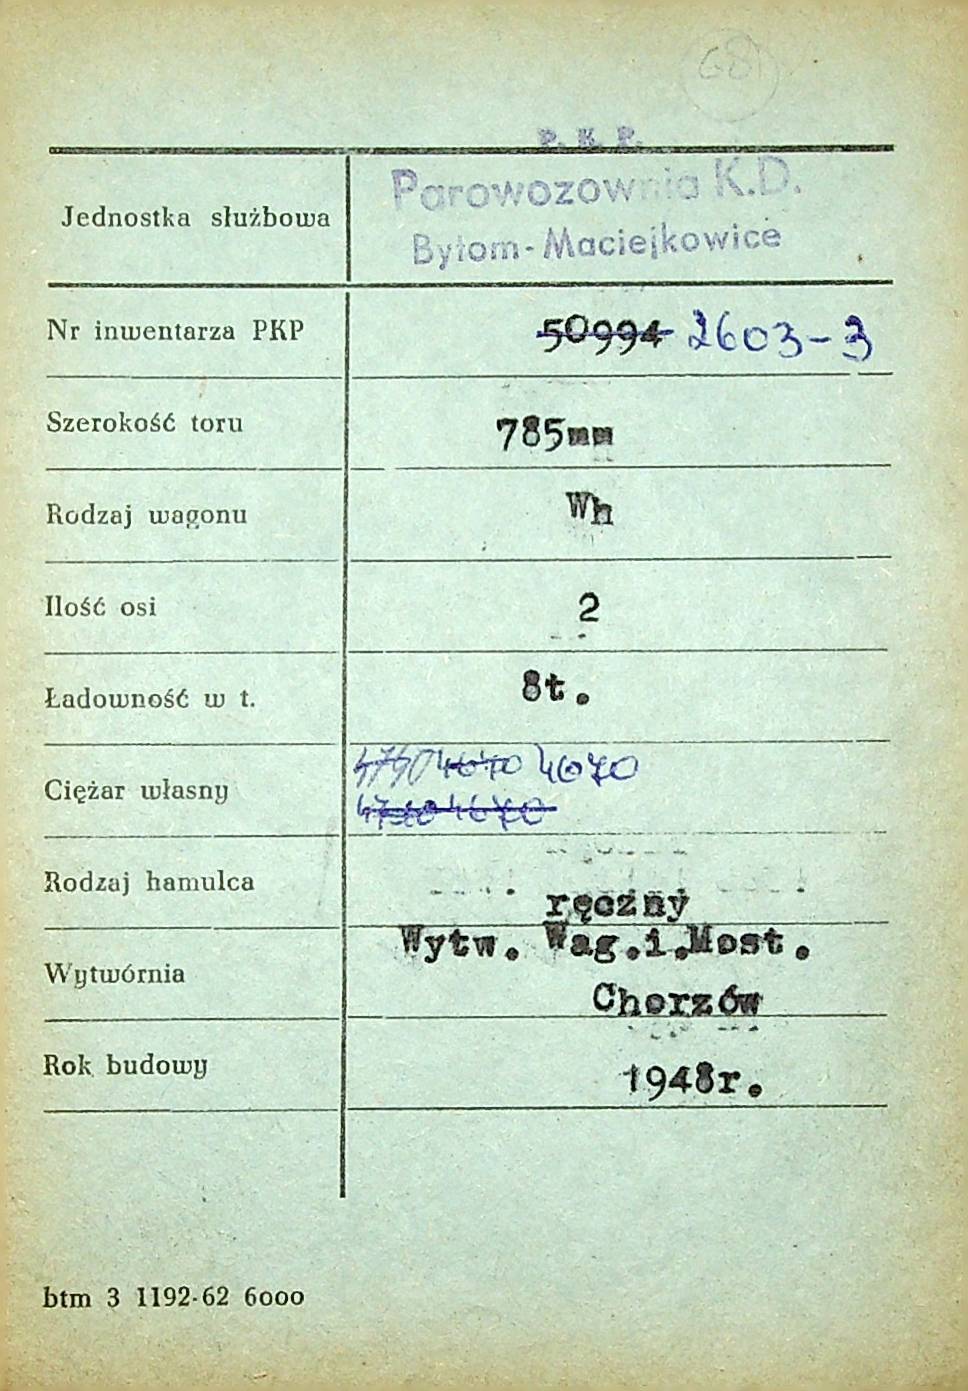 681
P. K. P.
Jednostka służbowa Parowozownia K.D.
Bytom-Maciejkowice
Nr inwentarza PKP 50994 2603-3
Szerokość toru 785mm
Rodzaj wagonu Wh
Ilość osi 2
Ładowność w t. 8t.
Ciężar własny 4670
4670
Rodzaj hamulca ręczny
Wytwórnia Wytw. Wag.i.Most.
Chorzów
Rok budowy 1948r.
btm 3 1192-62 6000